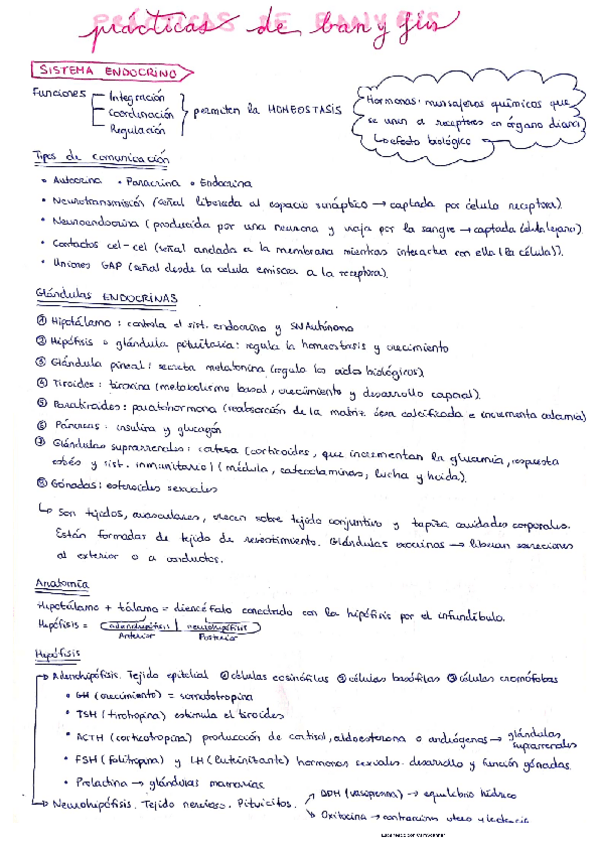 prácticas de ban y fis
SISTEMA ENDOCRINO
Funciones Integración
Coordinación
Regulación
permiten la HOMEOSTASIS
Hormonas: mensajeros químicos que
se unen a receptores en órgano diana
↳ efecto biológico
Tipos de comunicación
• Autocrina • Paracrina • Endocrina
• Neurotransmisión (señal liberada al espacio sináptico → captada por célula receptora).
• Neuroendocrina (producida por una neurona y viaja por la sangre → captada célula lejana)
• Contactos cel-cel (señal anclada a la membrana mientras interactua con ella (la célula)).
• Uniones GAP (señal desde la celula emisora a la receptora).
Glándulas ENDOCRINAS
① Hipotálamo: controla el sist. endocrino y SNAutónomo
② Hipófisis o glándula pituitaria: regula la homeostasis y crecimiento
③ Glándula pineal: secreta melatonina (regula los ciclos biológicos).
④ Tiroides: tiroxina (metabolismo basal, crecimiento y desarrollo corporal).
⑤ Paratiroides: paratohormona (reabsorción de la matriz ósea calcificada e incrementa calcemia)
⑥ Páncreas: insulina y glucagón
⑦ Glándulas suprarrenales: corteza (corticoides, que incrementan la glucemia, respuesta
estrés y sist. inmunitario) (médula, catecolaminas, lucha y huida).
⑧ Gónadas: esteroides sexuales
↳ Son tejidos, avasculares, crecen sobre tejido conjuntivo y tapiza cavidades corporales.
Están formadas de tejido de revestimiento. Glándulas exocrinas → liberan secreciones
al exterior o a conductos.
Anatomía
Hipotálamo + tálamo = diencéfalo conectado con la hipófisis por el infundíbulo.
Hipófisis = adenohipófisis | neurohipófisis
Anterior Posterior
Hipófisis
→ Adenohipófisis. Tejido epitelial ① células acinófilas ② células basófilas ③ células cromófobas
• GH (crecimiento) = somatotropina
• TSH (tirotropina) estimula el tiroides
• ACTH (corticotropina) producción de cortisol, aldosterona o andrógenos → glándulas
suprarrenales
• FSH (folitropina) y LH (luteinizante) hormonas sexuales. desarrollo y función gónadas.
• Prolactina → glándulas mamarias
→ Neurohipófisis. Tejido nervioso. Pituicitos. ADH (vasopresina) → equilibrio hídrico
Oxitocina → contracción utero y lactancia